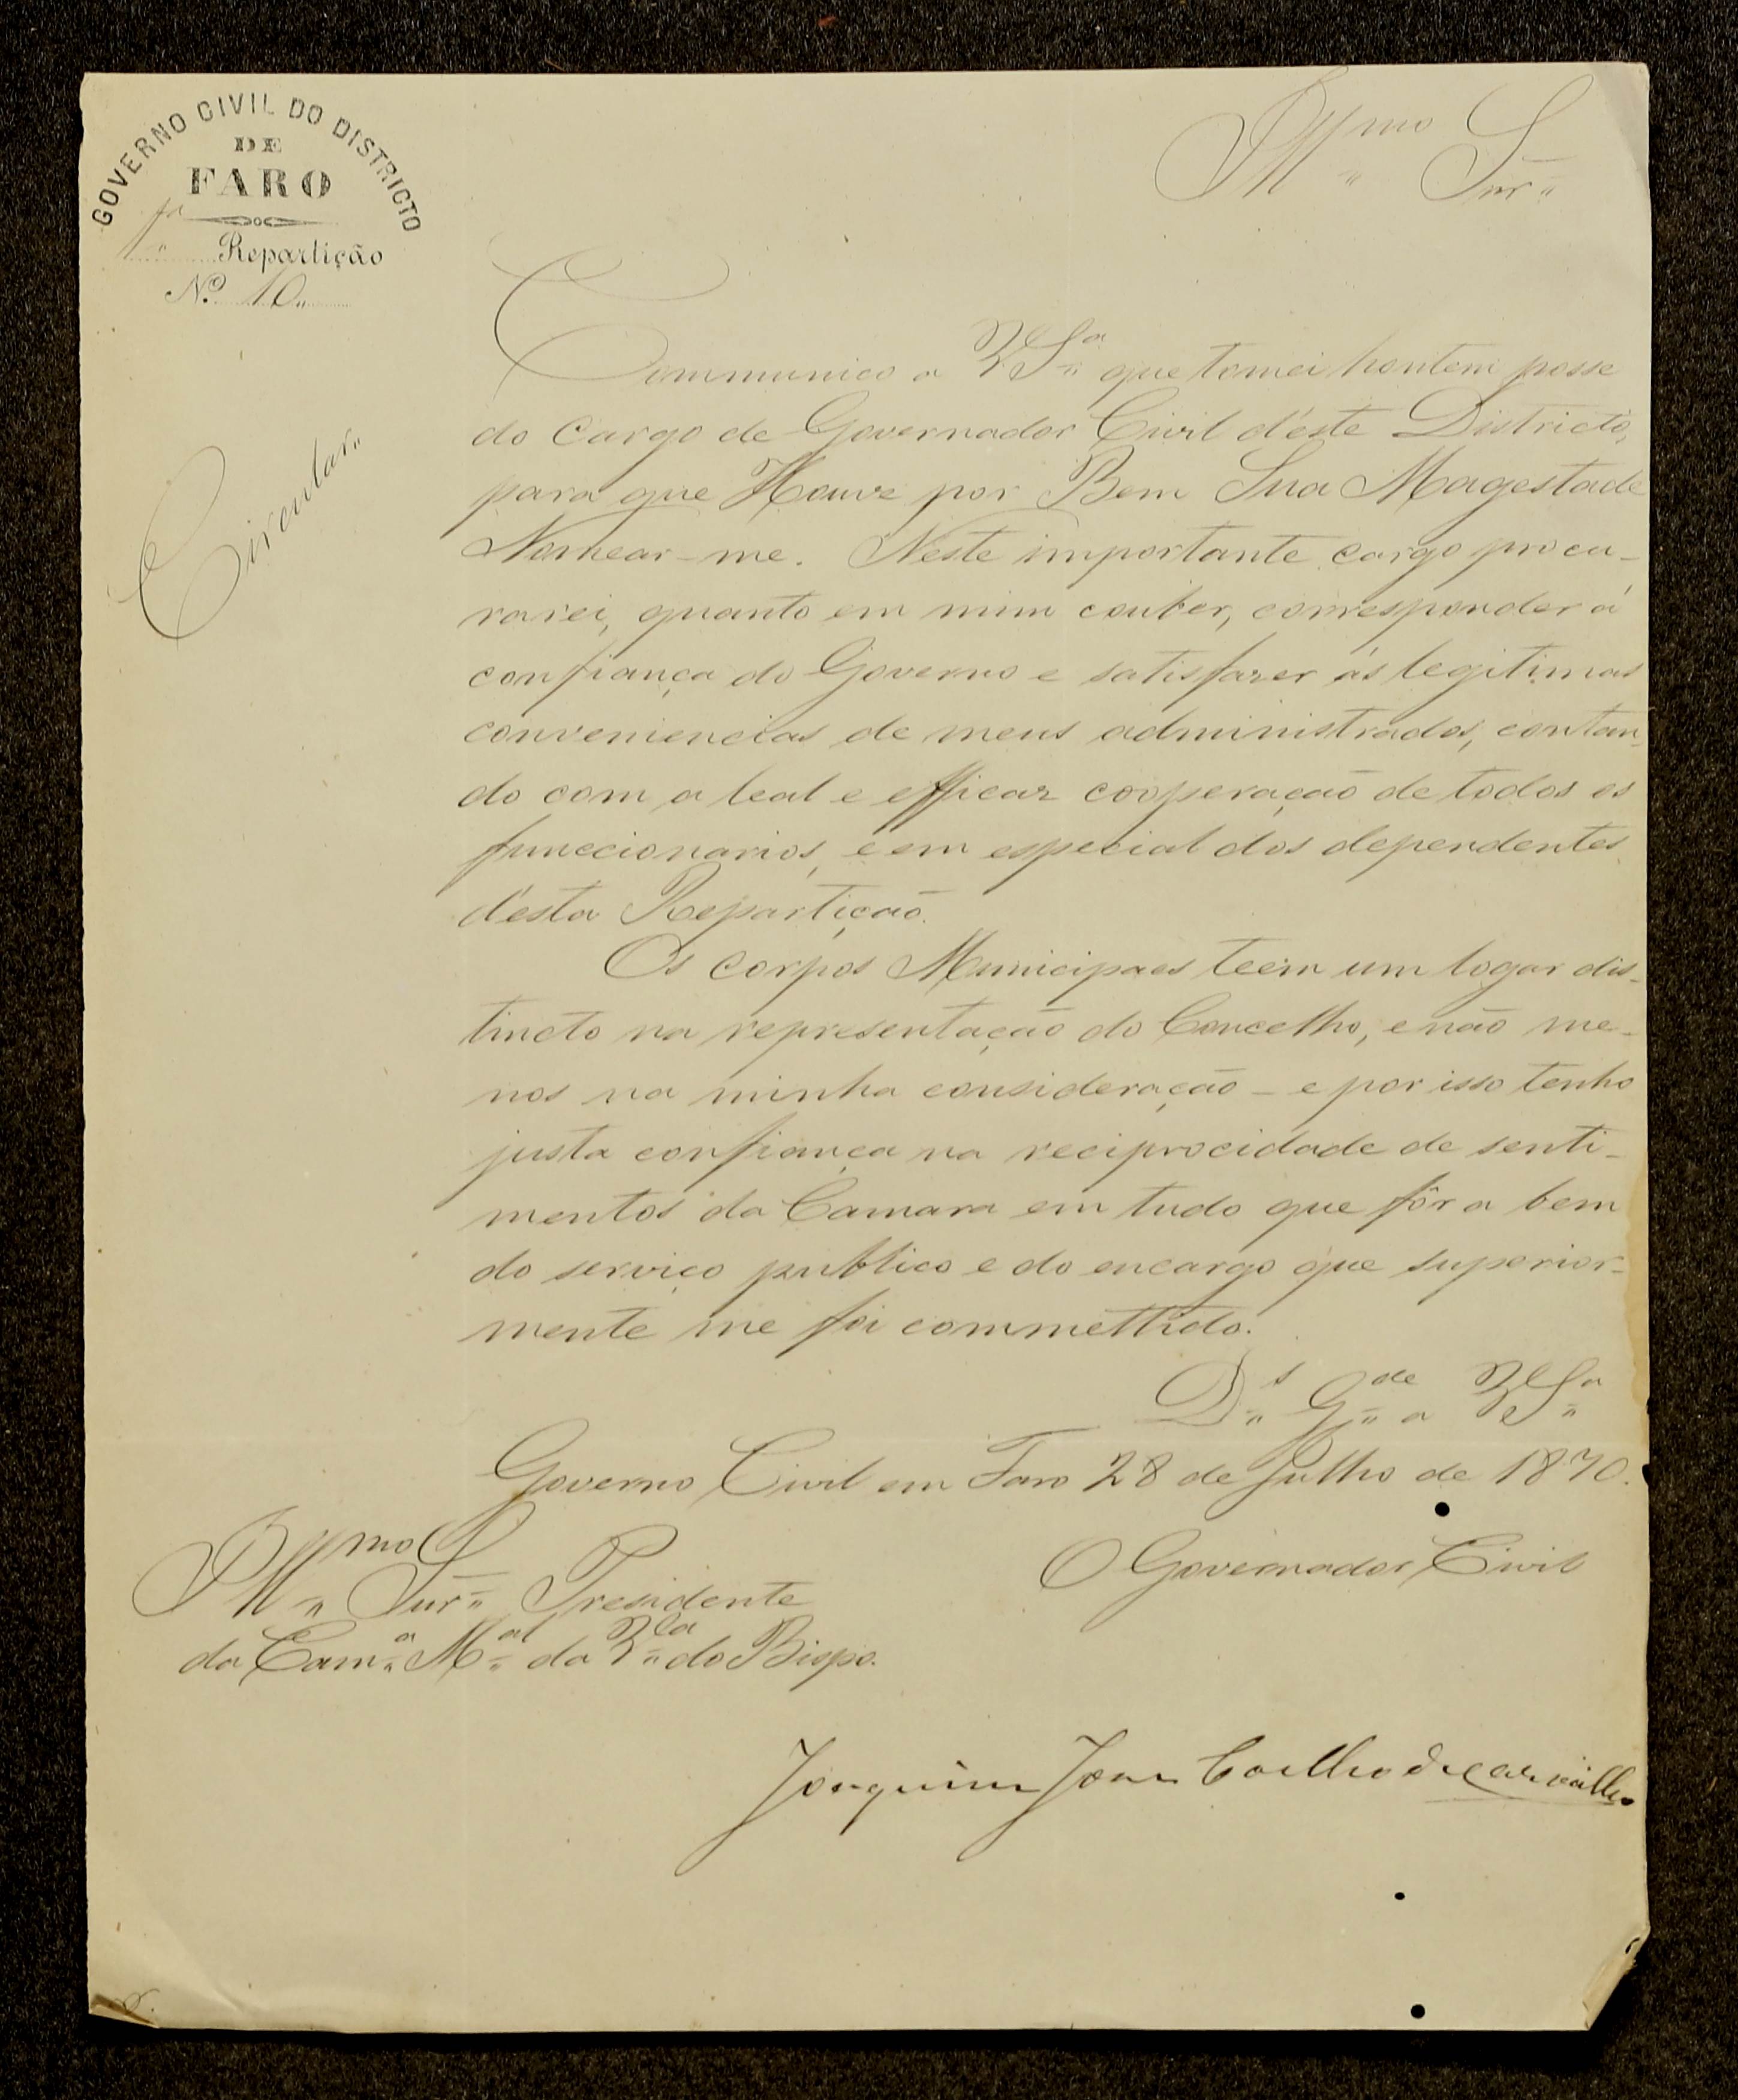 GOVERNO CIVIL DO DISTRICTO
DE
FARO
1ª Repartição
N.º 10
Illmo Snr
Circular
Communico a V Sª que tomei hontem posse
do cargo de Governador Civil d'este Districto,
para que Houve por Bem Sua Magestade
Nomear-me. Neste importante cargo procu-
rarei, quanto em mim couber, corresponder á
confiança do Governo e satisfazer ás legitimas
conveniencias de meus administrados, contan-
do com a leal e efficaz cooperação de todos os
funccionarios, e em especial dos dependentes
d'esta Repartição.
Os corpos Municipaes teem um logar dis-
tincto na representação do Concelho, e não me-
nos na minha consideração - e por isso tenho
justa confiança na reciprocidade de senti-
mentos da Camara em tudo que fôr a bem
do serviço publico e do encargo que superior-
mente me foi commettido.
Ds Gde a V Sª
Governo Civil em Faro 28 de Julho de 1870.
O Governador Civil
Illmo Snr Presidente
da Camª Mal da Vla do Bispo.
Joaquim José Coelho de Carvalho